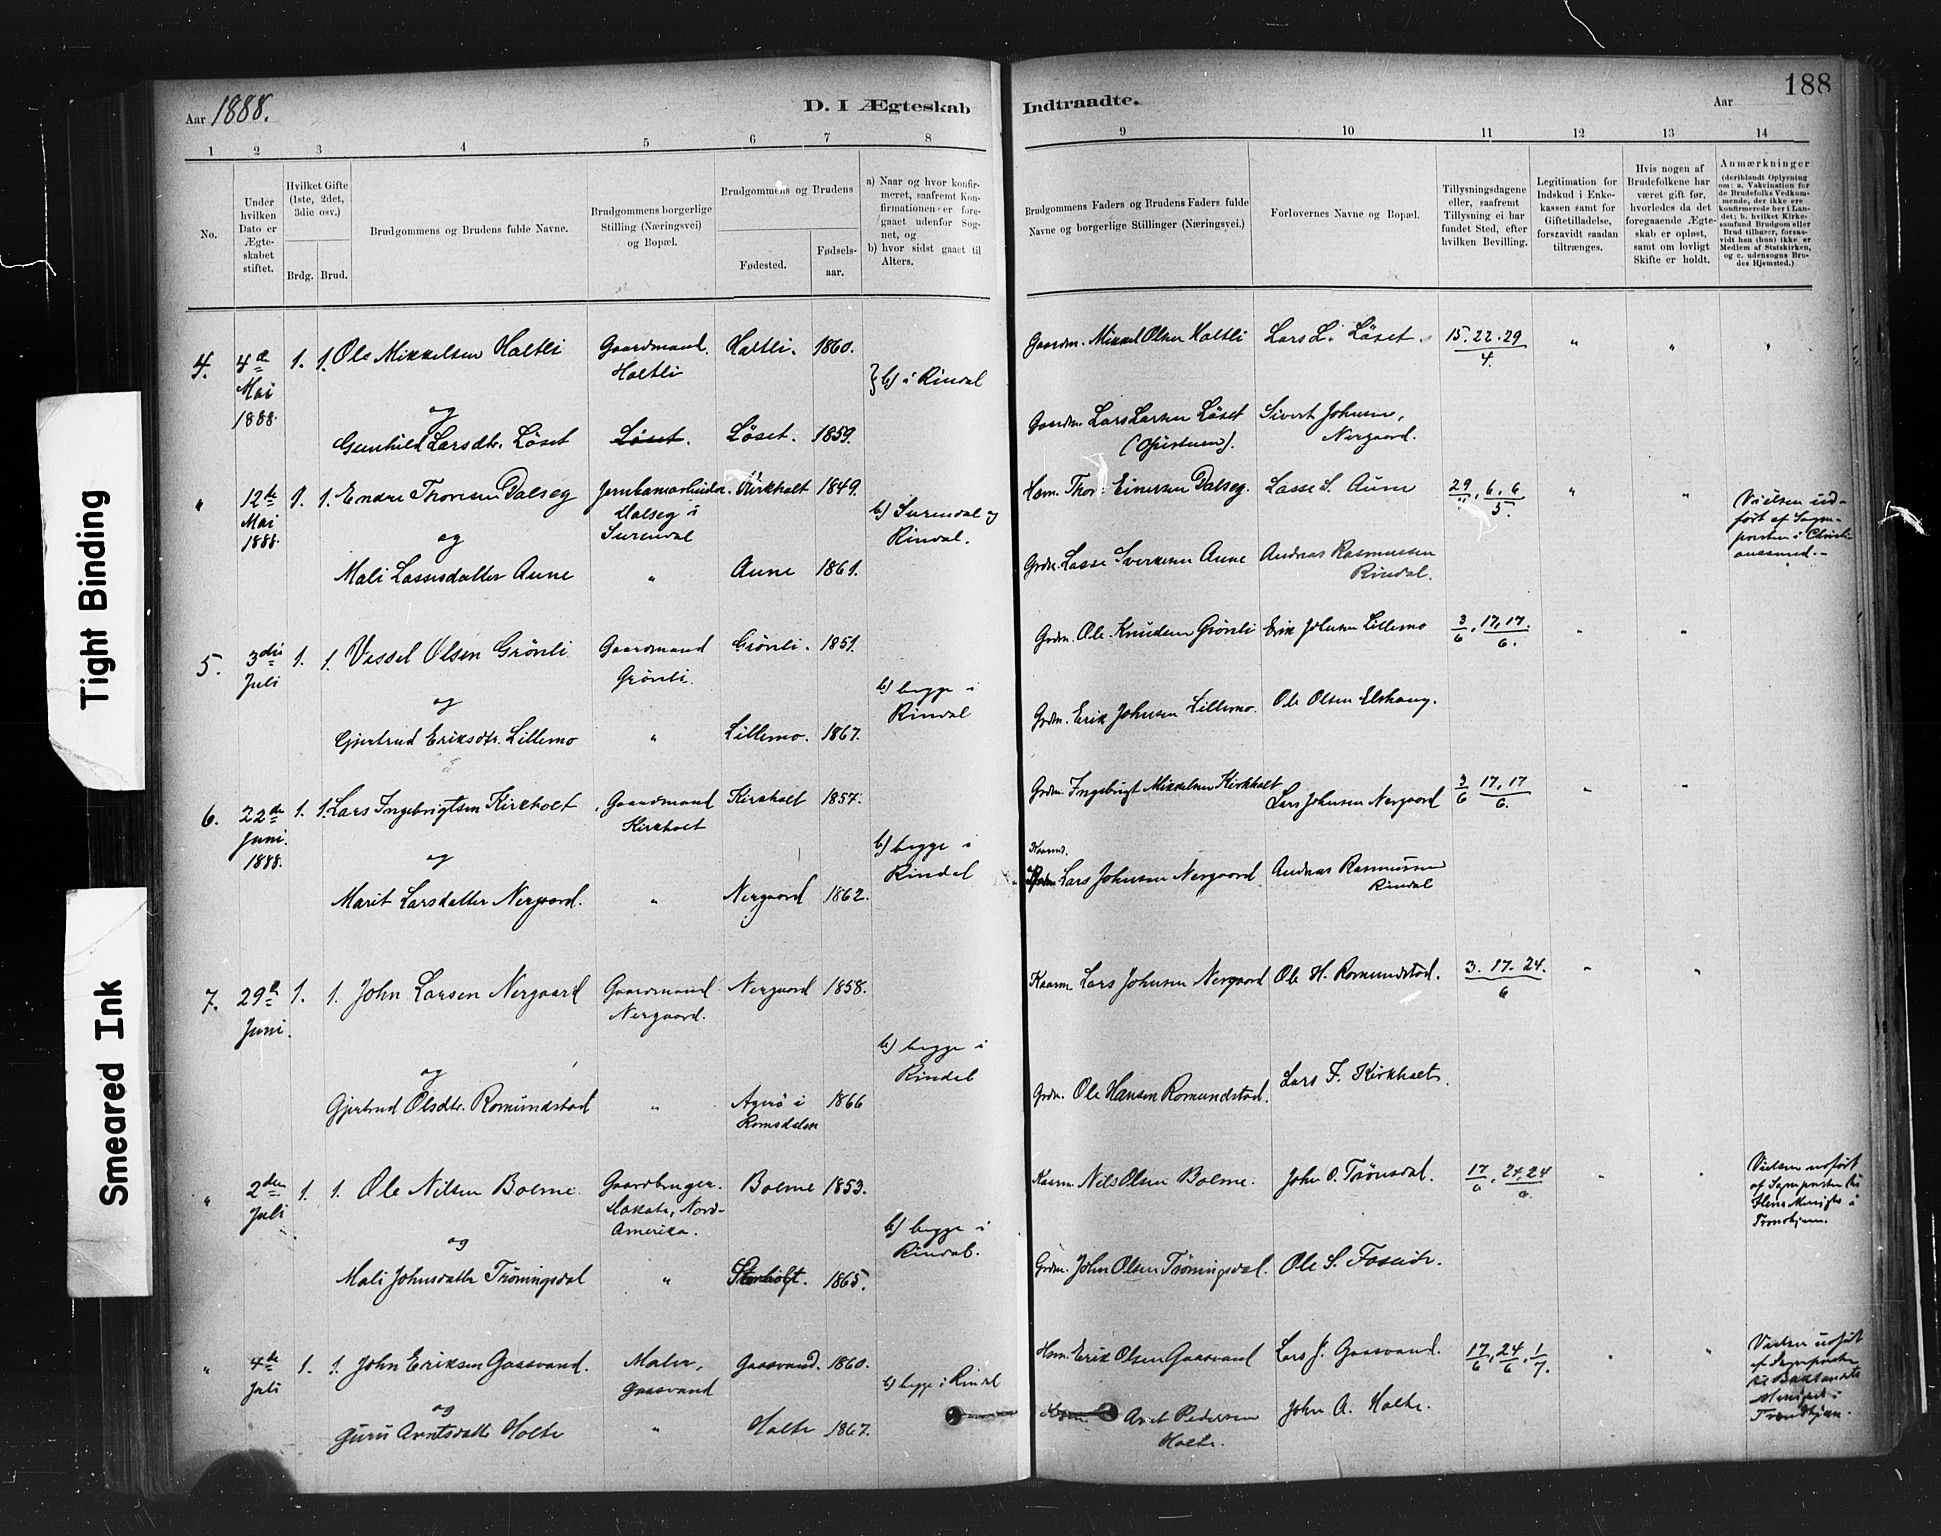 Tight Binding
Smeared Ink
Aar 1888.
D. I Ægteskab
Indtraadte.
Aar
188
1 2 3 4 5 6 7 8
9 10 11 12 13 14
No.
Under hvilken Dato er Ægteskabet stiftet.
Hvilket Gifte (1ste, 2det, 3die osv.)
Brdg. Brud.
Brudgommens og Brudens fulde Navne.
Brudgommens borgerlige Stilling (Næringsvei) og Bopæl.
Brudgommens og Brudens
Fødested.
Fødsels-aar.
a) Naar og hvor konfirmeret, saafremt Konfirmationen er foregaaet udenfor Sognet, og
b) hvor sidst gaaet til Alters.
Brudgommens Faders og Brudens Faders fulde Navne og borgerlige Stillinger (Næringsvei.)
Forlovernes Navne og Bopæl.
Tillysningsdagene eller, saafremt Tillysning ei har fundet Sted, efter hvilken Bevilling.
Legitimation for Indskud i Enkekassen samt for Giftetilladelse, forsaavidt saadan tiltrænges.
Hvis nogen af Brudefolkene har været gift før, hvorledes da det foregaaende Ægteskab er opløst, samt om lovligt Skifte er holdt.
Anmærkninger
(deriblandt Oplysning om: a. Vakcination for de Brudefolks Vedkommende, der ikke ere konfirmerede her i Landet; b. hvilket Kirkesamfund Brudgom eller Brud tilhører, forsaavidt han (hun) ikke er Medlem af Statskirken, og c. udensogns Brudes Hjemsted.)
4. 4de Mai 1888. 1. 1. Ole Mikkelsen Holtli Gaardmand. Holtli Holtli. 1860. b) i Rindal
Gaardm. Mikkel Olsen Holtli Lars L. Löset. 15. 22. 29 / 4. " " "
og
Gunhild Larsdtr. Löset Löset. Löset. 1859.
Gaardm. Lars Larsen Löset Sivert Johnsen, Nergaard.
" 12te Mai 1888. 1. 1. Endre Thoresen Dalseg Jernbanearbeider Dalseg i Surendal Kirkholt 1849. b) Surendal og Rindal.
Hsm. Thore Einersen Dalseg. Lasse S. Aune 29/4, 6, 6/5. " " Vielsen udført af Sogne-
presten i Christi-
anssund.
og
Mali Lassesdatter Aune " Aune 1861.
Grdm. Lasse Sverkesen Aune Andreas Rasmussen Rindal.
5. 3die Juli 1. 1. Vessel Olsen Grönli Gaardmand Grönli. Grönli. 1851. b) begge i Rindal
Grdm. Ole Knudsen Grönli Erik Johnsen Lillemo 3/6, 17, 17./6. " "
og
Gjertrud Eriksdtr. Lillemo " Lillemo. 1867.
Grdm. Erik Johnsen Lillemo. Ole Olsen Elshaug.
6. 22de Juni. 1888. 1. 1. Lars Ingebrigtsen Kirkholt Gaardmand Kirkholt Kirkholt 1857. b) begge i Rindal
Grdm. Ingebrigt Mikkelsen Kirkholt Lars Johnsen Nergaard 3/6 17, 17/6. " "
og
Marit Larsdatter Nergaard. " Nergaard 1862.
Kaarm. Lars Johnsen Nergaard Andreas Rasmussen Rindal
7. 29de Juni. 1. 1. John Larsen Nergaard Gaardmand Nergaard. Nergaard 1858. b) begge i Rindal
Kaarm. Lars Johnsen Nergaard Ole H. Romundstad. 3. 17. 24./6 " "
og
Gjertrud Olsdtr. Romundstad " Agerö i Romsdalen 1866
Grdm. Ole Hansen Romundstad. Lars F. Kirkholt.
" 2den Juli 1. 1. Ole Nilsen Bolme Gaardbruger. Dakota, Nord-Amerika. Bolme 1853. b) begge i Rindal.
Kaarm. Nils Olsen Bolme. John O. Trönsdal. 17/6, 24, 24/6. " " Vielsen udført
af Sognepresten
i
Trondhjem.
og
Mali Johnsdatter Tröningsdal " 1865.
Grdm. John Olsen Tröningsdal. Ole S. Fosseide.
" 4de Juli 1. 1. John Eriksen Gaasvand. Maler, Gaasvand Gaasvand. 1860. b) begge i Rindal
Hsm. Erik Olsen Gaasvand Lars J. Gaasvand. 17/6, 24/6, 1/7. " " Vielsen udført
af Sognepresten
til Baklandets
Menighed i
Trondhjem.
og
Guru Arntsdatter Holte " Holte 1867.
Hsm. Arnt Pedersen Holte. John A. Holte.